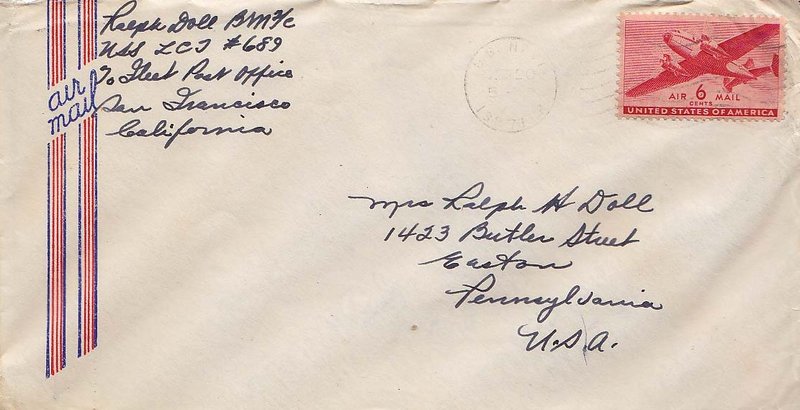 Ralph Doll BM 2/c
USS LCT #689
To Fleet Post Office
San Francisco
California
air
mail
AIR 6 MAIL
CENTS
UNITED STATES OF AMERICA
Mrs Ralph H Doll
1423 Butler Street
Easton
Pennsylvania
U.S.A.